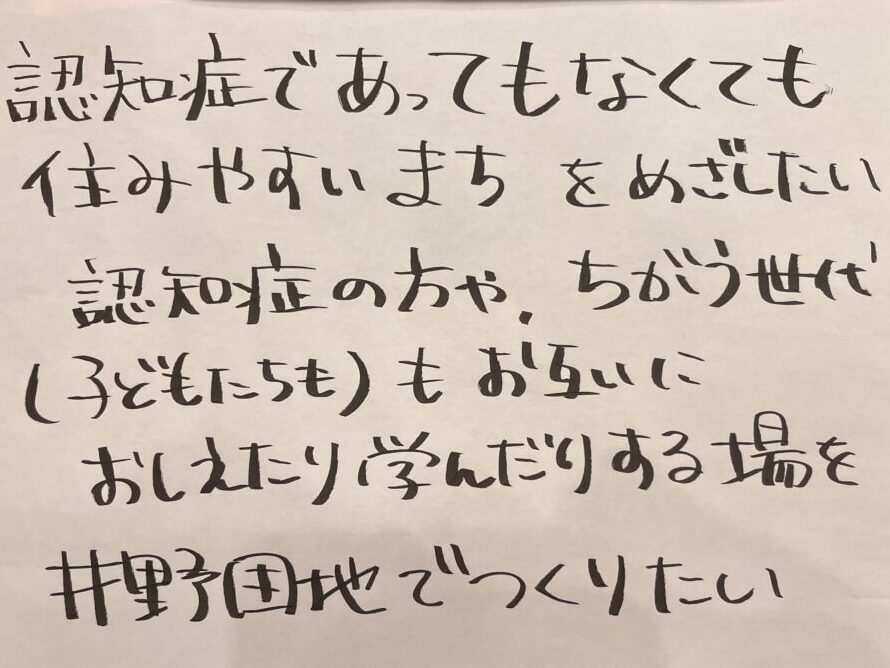 認知症であってもなくても
住みやすいまちをめざしたい
認知症の方や、ちがう世代
(子どもたちも)もお互いに
おしえたり学んだりする場を
井野団地でつくりたい